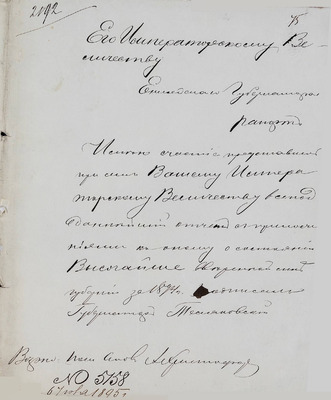 2192
Его Императорскому Ве-
личеству
Енисейского Губернатора
рапортъ
Имѣю счастіе представить
при семъ Вашему Импера
торскому Величеству всепод
даннѣйшій отчетъ съ приложе
ніями къ оному о состояніи
Высочайше ввѣренной мнѣ
губерніи за 1894 г. Подписалъ
Губернаторъ Теляковскій
Вѣрно:
№ 5158
1895 г.